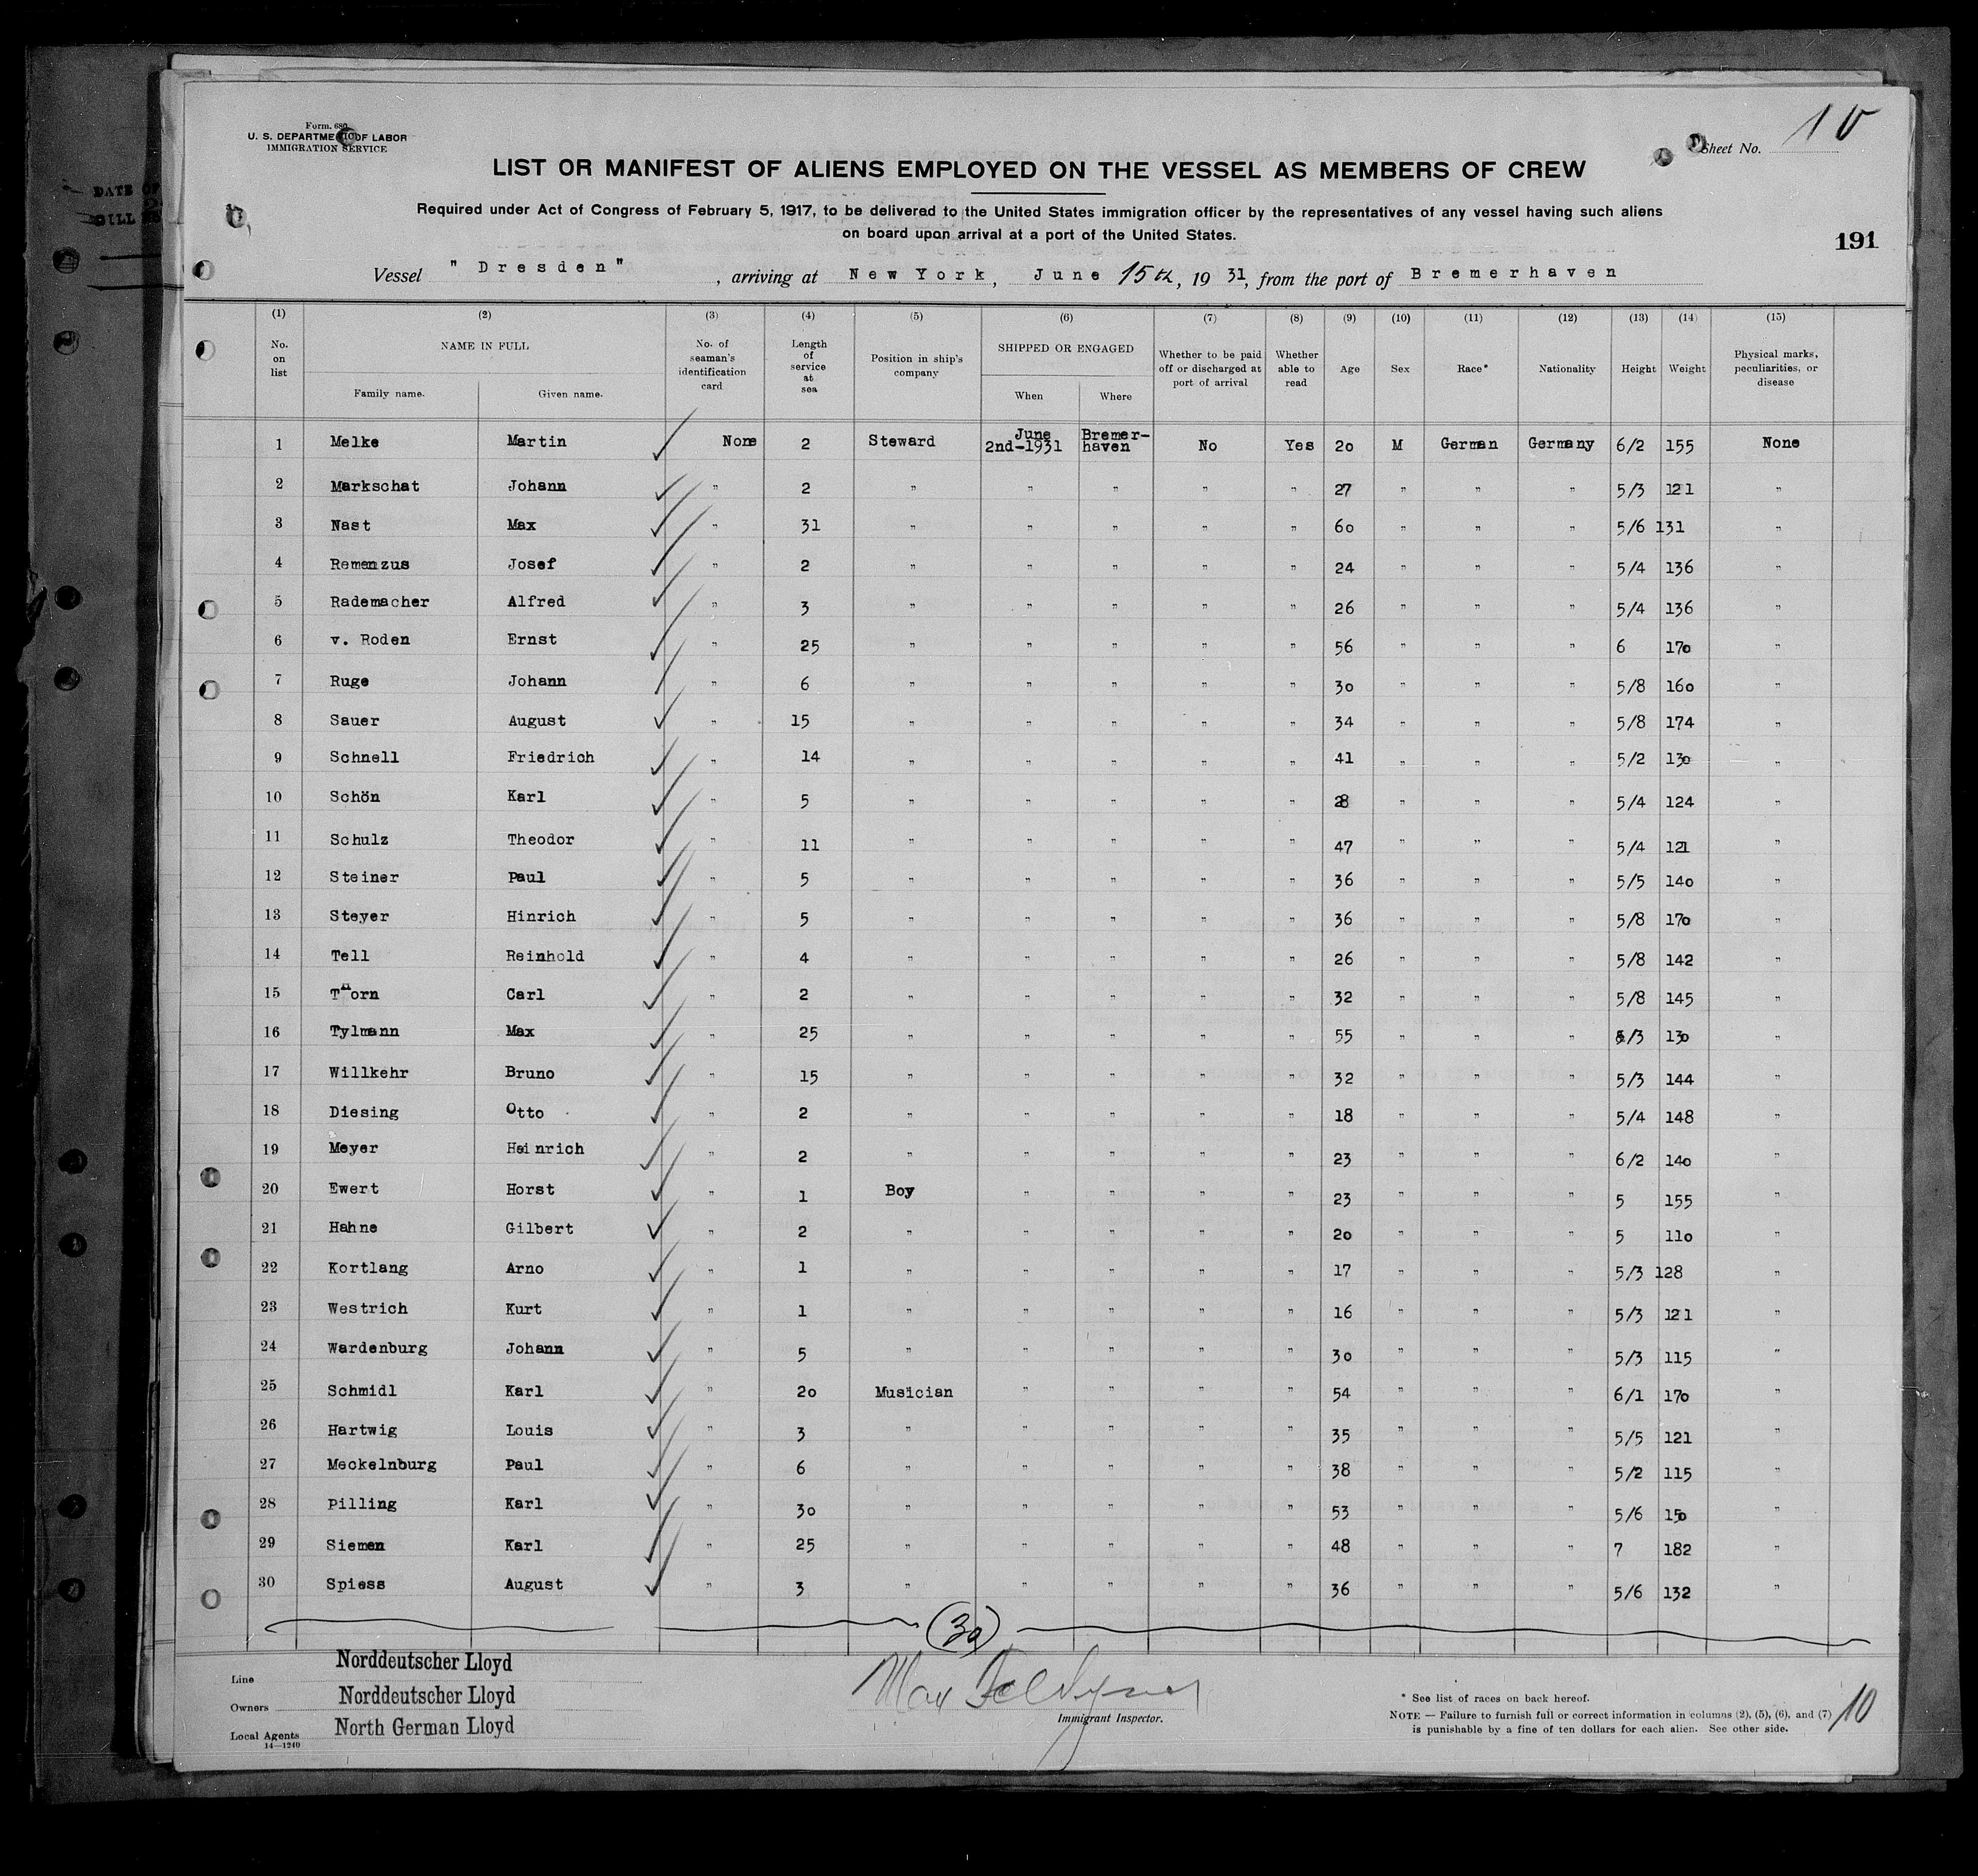 Form. 680
U. S. DEPARTMENT OF LABOR
IMMIGRATION SERVICE
Sheet No. 10
LIST OR MANIFEST OF ALIENS EMPLOYED ON THE VESSEL AS MEMBERS OF CREW
Required under Act of Congress of February 5, 1917, to be delivered to the United States immigration officer by the representatives of any vessel having such aliens
on board upon arrival at a port of the United States.
191
Vessel "Dresden", arriving at New York, June 15th, 19 31, from the port of Bremerhaven
(1) (2) (3) (4) (5) (6) (7) (8) (9) (10) (11) (12) (13) (14) (15)
No. on list NAME IN FULL Family name. Given name. No. of seaman's identification card Length of service at sea Position in ship's company SHIPPED OR ENGAGED When Where Whether to be paid off or discharged at port of arrival Whether able to read Age Sex Race* Nationality Height Weight Physical marks, peculiarities, or disease
1 Melke Martin None 2 Steward June 2nd-1931 Bremer-haven No Yes 20 M German Germany 6/2 155 None
2 Markschat Johann " 2 " " " " " 27 " " " 5/3 121 "
3 Nast Max " 31 " " " " " 60 " " " 5/6 131 "
4 Remenzus Josef " 2 " " " " " 24 " " " 5/4 136 "
5 Rademacher Alfred " 3 " " " " " 26 " " " 5/4 136 "
6 v. Roden Ernst " 25 " " " " " 56 " " " 6 170 "
7 Ruge Johann " 6 " " " " " 30 " " " 5/8 160 "
8 Sauer August " 15 " " " " " 34 " " " 5/8 174 "
9 Schnell Friedrich " 14 " " " " " 41 " " " 5/2 130 "
10 Schön Karl " 5 " " " " " 28 " " " 5/4 124 "
11 Schulz Theodor " 11 " " " " " 47 " " " 5/4 121 "
12 Steiner Paul " 5 " " " " " 36 " " " 5/5 140 "
13 Steyer Hinrich " 5 " " " " " 36 " " " 5/8 170 "
14 Tell Reinhold " 4 " " " " " 26 " " " 5/8 142 "
15 Thorn Carl " 2 " " " " " 32 " " " 5/8 145 "
16 Tylmann Max " 25 " " " " " 55 " " " 5/3 130 "
17 Willkehr Bruno " 15 " " " " " 32 " " " 5/3 144 "
18 Diesing Otto " 2 " " " " " 18 " " " 5/4 148 "
19 Meyer Heinrich " 2 " " " " " 23 " " " 6/2 140 "
20 Ewert Horst " 1 Boy " " " " 23 " " " 5 155 "
21 Hahne Gilbert " 2 " " " " " 20 " " " 5 110 "
22 Kortlang Arno " 1 " " " " " 17 " " " 5/3 128 "
23 Westrich Kurt " 1 " " " " " 16 " " " 5/3 121 "
24 Wardenburg Johann " 5 " " " " " 30 " " " 5/3 115 "
25 Schmidl Karl " 20 Musician " " " " 54 " " " 6/1 170 "
26 Hartwig Louis " 3 " " " " " 35 " " " 5/5 121 "
27 Meckelnburg Paul " 6 " " " " " 38 " " " 5/2 115 "
28 Pilling Karl " 30 " " " " " 53 " " " 5/6 150 "
29 Siemen Karl " 25 " " " " " 48 " " " 7 182 "
30 Spiess August " 3 " " " " " 36 " " " 5/6 132 "
(30)
Line Norddeutscher Lloyd
Owners Norddeutscher Lloyd
Local Agents North German Lloyd
14—1240
Max
Immigrant Inspector.
* See list of races on back hereof.
NOTE — Failure to furnish full or correct information in columns (2), (5), (6), and (7)
is punishable by a fine of ten dollars for each alien. See other side.
10